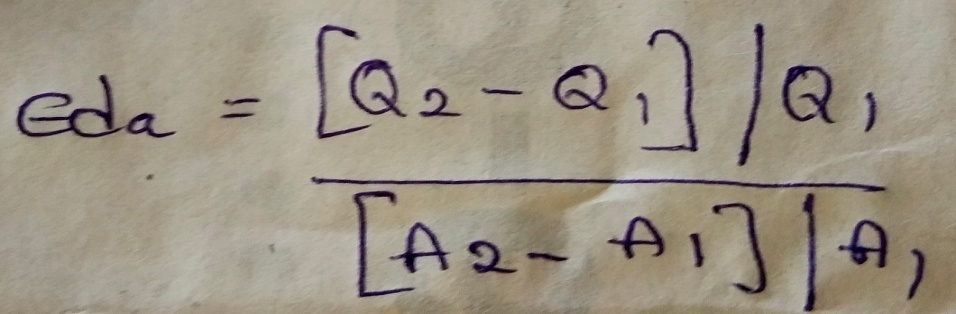 Eda = [Q2 - Q1] / Q1
[A2 - A1] / A1